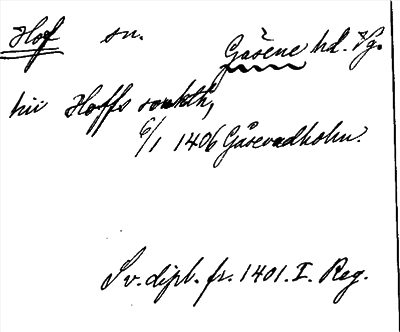 Hof sn. Gäsene hd. Vg.
hii Hoffs sokth,
6/1 1406 Gäsevadholm.
Sv. dipl. fr. 1401. I. Reg.